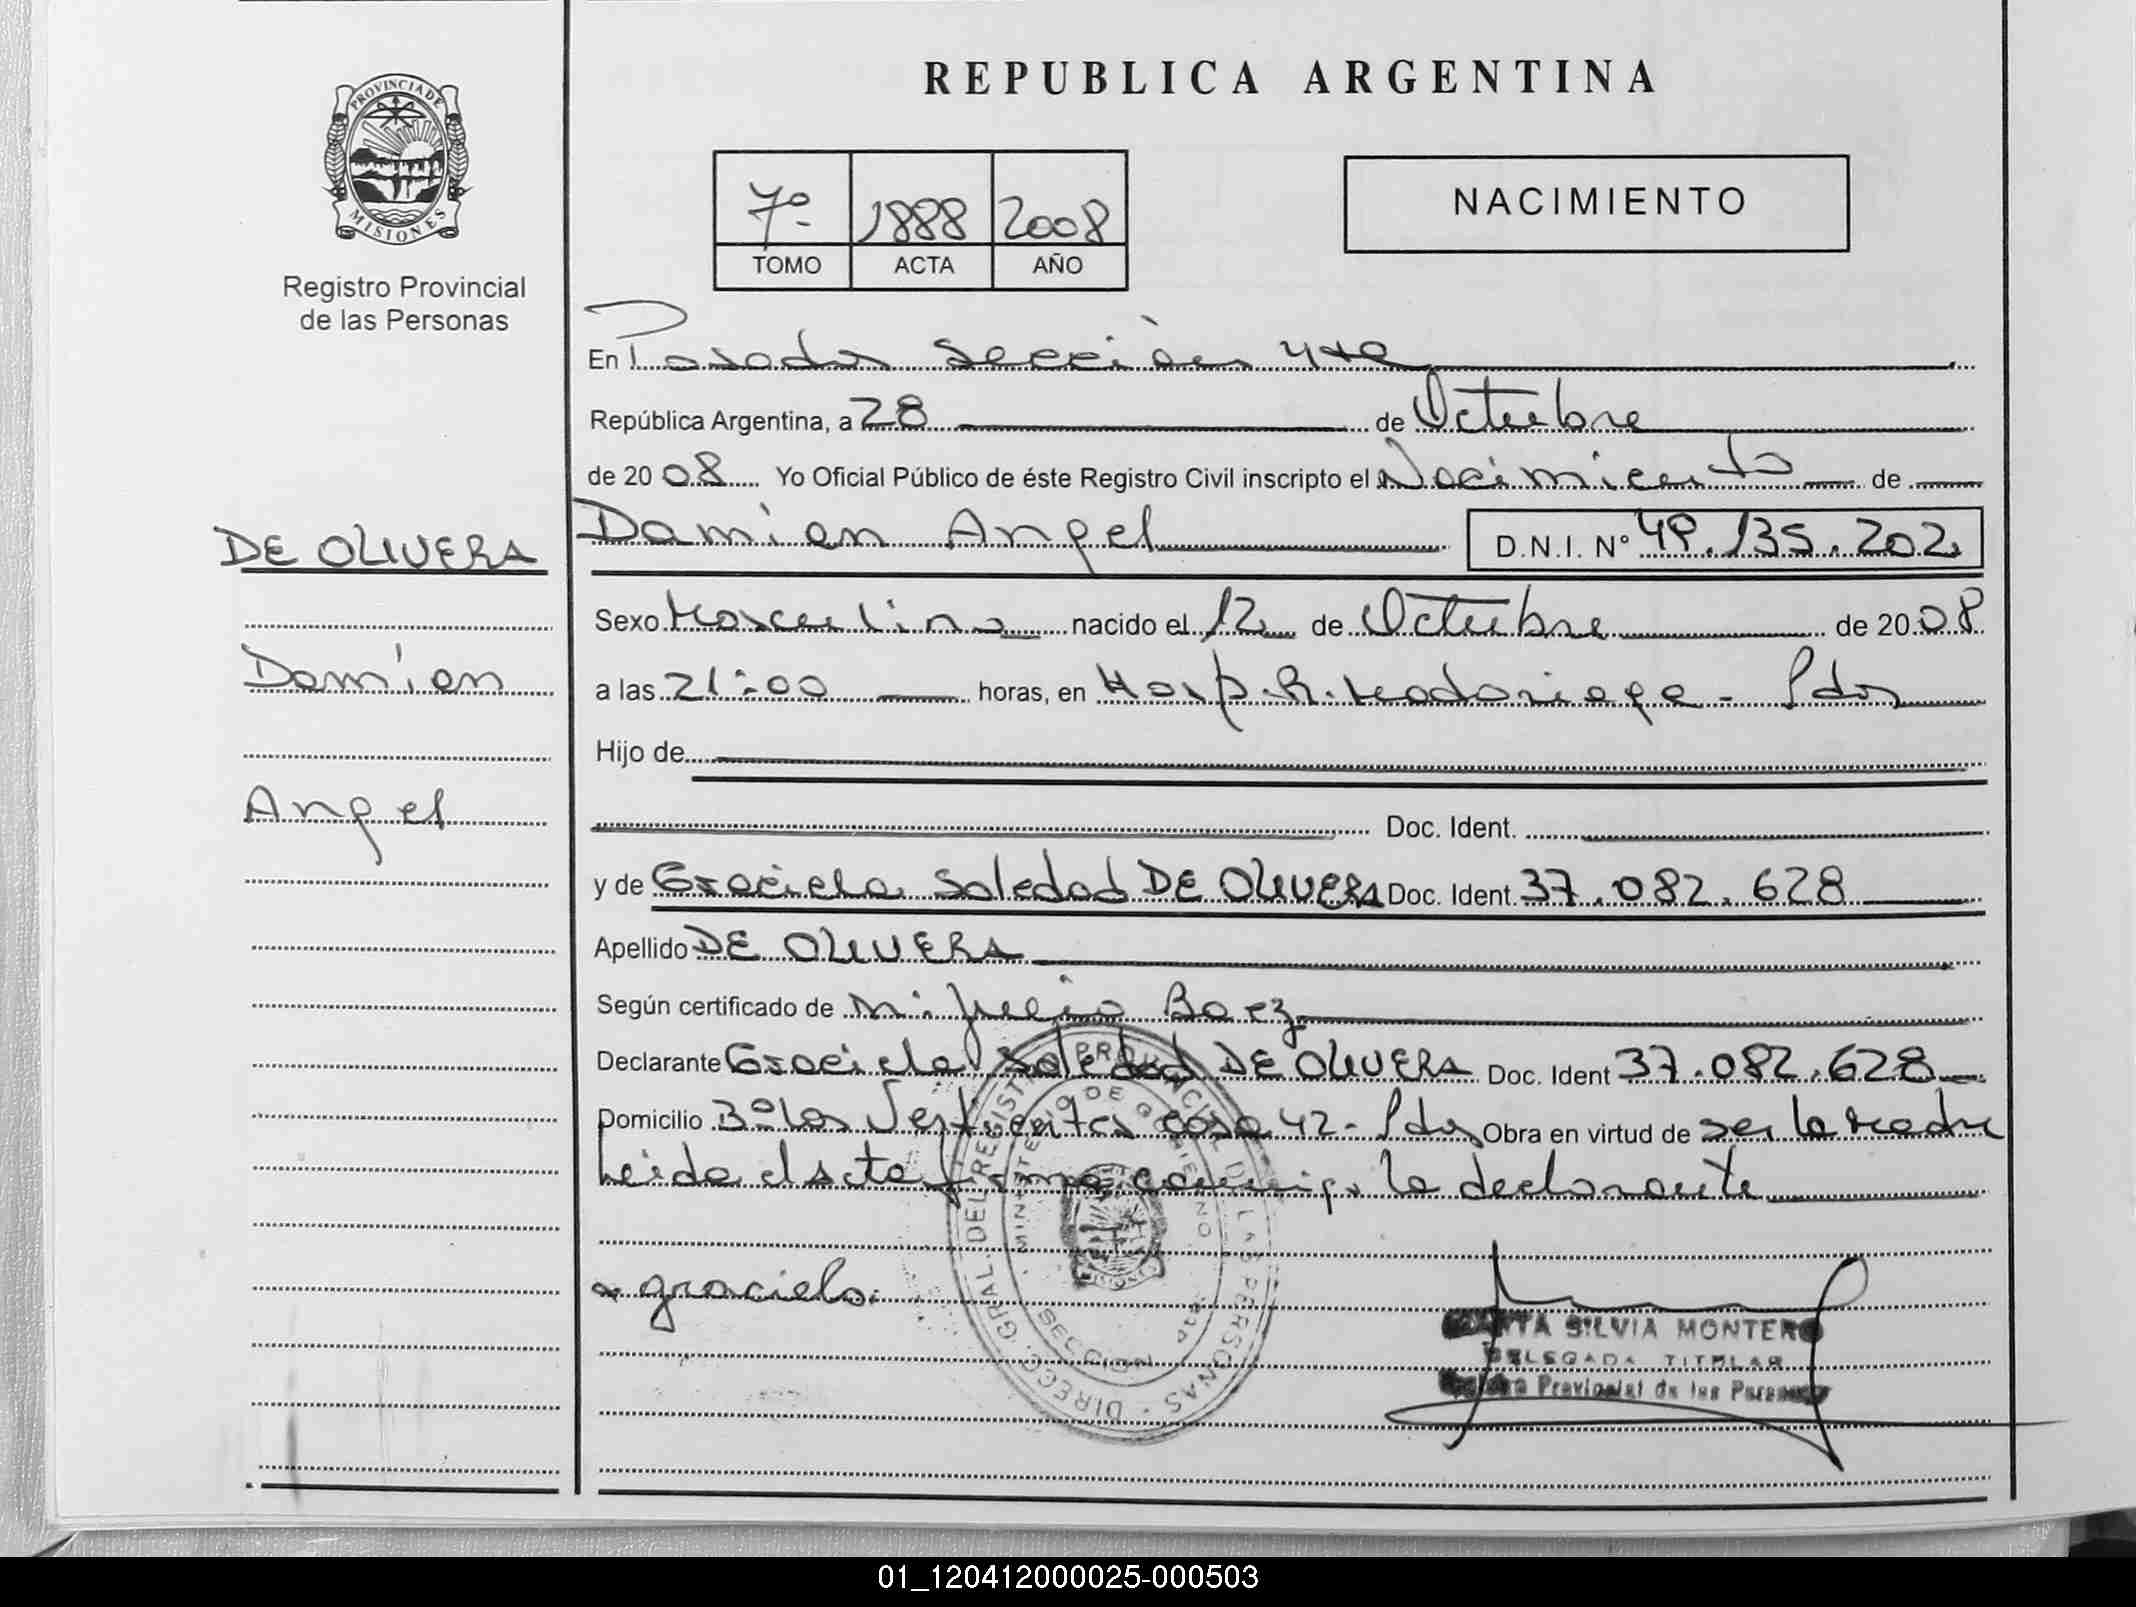 REPUBLICA ARGENTINA
PROVINCIA DE MISIONES
Registro Provincial
de las Personas
7º 1888 2008
TOMO ACTA AÑO
NACIMIENTO
En Posadas Sección 4ta
República Argentina, a 28 de Octubre
de 2008 Yo Oficial Público de éste Registro Civil inscripto el Nacimiento de
DE OLIVERA
Damián
Angel
Damián Angel D.N.I. Nº 49.135.202
Sexo Masculino nacido el 12 de Octubre de 2008
a las 21:00 horas, en Hosp. R. Madariaga - Pdas
Hijo de
Doc. Ident.
y de Graciela Soledad DE OLIVERA Doc. Ident. 37.082.628
Apellido DE OLIVERA
Según certificado de Julio Baez
Declarante Graciela Soledad DE OLIVERA Doc. Ident 37.082.628
Domicilio Bº los Vertientes casa 42 - Pdas Obra en virtud de ser la madre
Leida el acta firma conmigo la declarante
graciela
DIRECC. GRAL. DEL REGISTRO PROVINCIAL DE LAS PERSONAS
MINISTERIO DE GOBIERNO
SECCION 4ta
MISIONES
SILVIA MONTERO
DELEGADA TITULAR
Provincial de las Personas
01_120412000025-000503